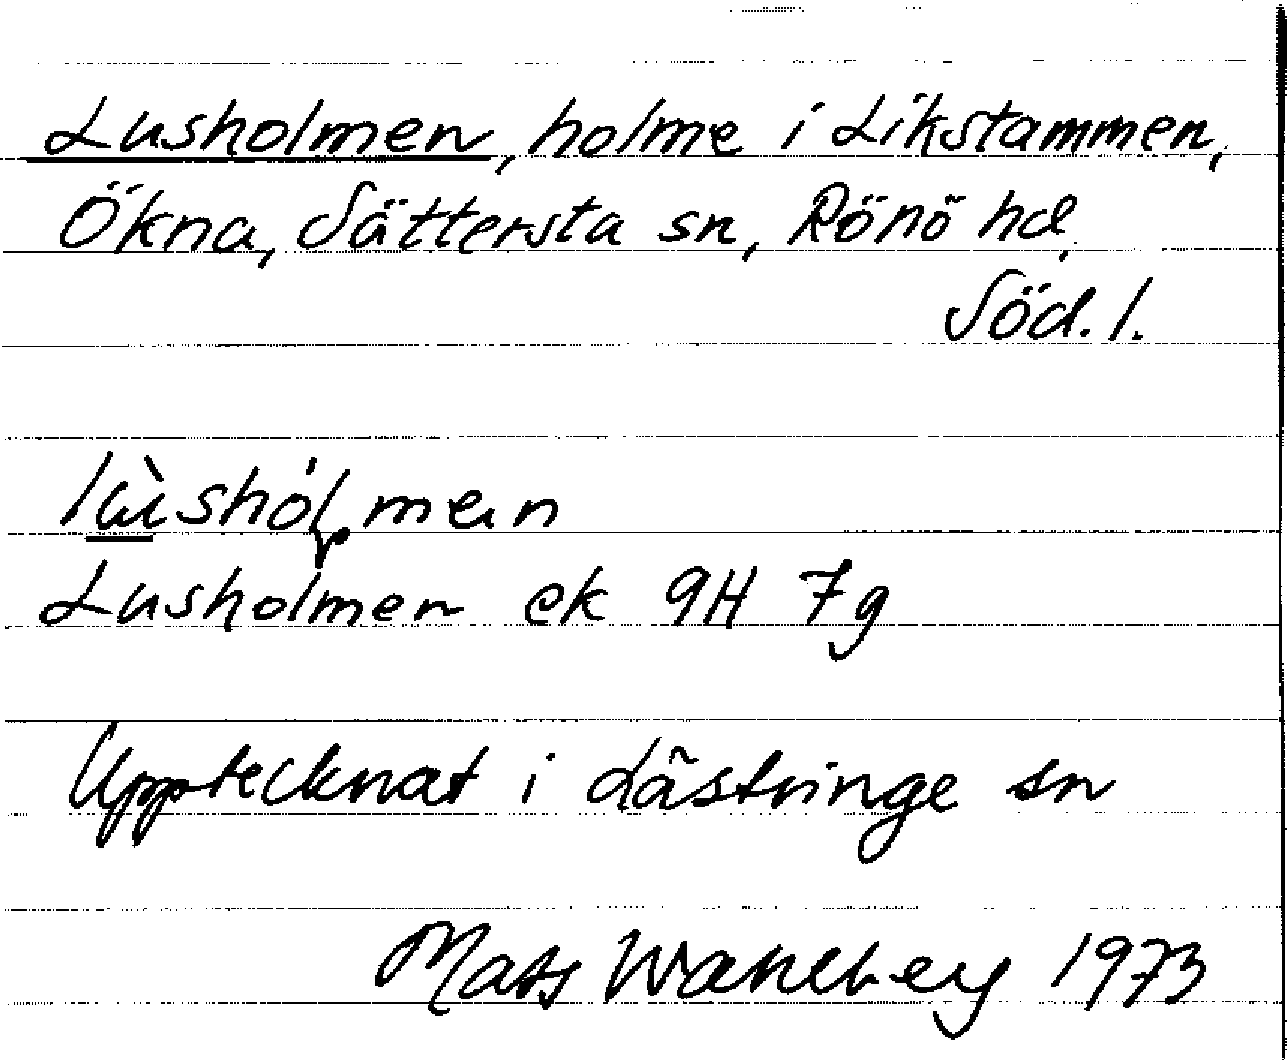 Lusholmen, holme i Likstammen,
Ökna, Sättersta sn, Rönö hd,
Söd. l.
lùshól̥men
Lusholmen ek 9H 7g
Upptecknat i Lästringe sn
Mats Wahlberg 1973